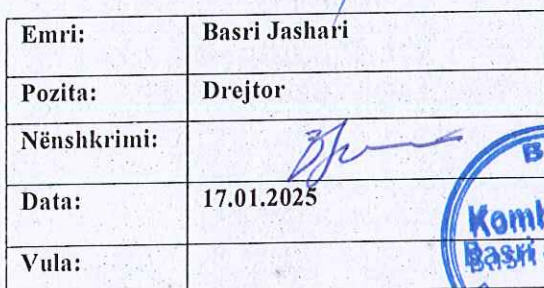 Emri: Basri Jashari
Pozita: Drejtor
Nënshkrimi:
Data: 17.01.2025
Vula:
Basri